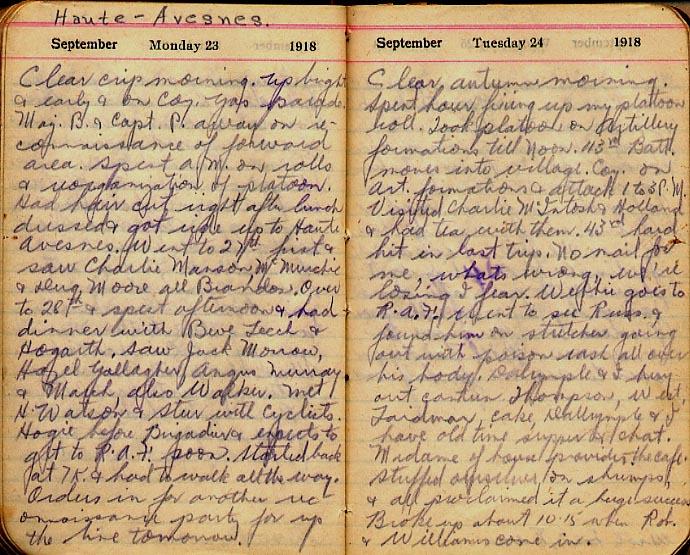 Haute-Avesnes.
September Monday 23 1918
Clear crisp morning. Up bright
& early & on Coy. gas parade.
Maj. B. & Capt. P. away on re-
connaissance of forward
area. Spent a.m. on rolls
& reorganization of platoon.
Had hair cut right after lunch
dressed & got ride up to Haute
Avesnes. Went to 27th first &
saw Charlie Manson, McMurchie
& Doug Moore all Brandon. Over
to 28th & spent afternoon & had
dinner with Beve Cecil &
Hogarth. Saw Jack Morrow,
Hazel Gallagher, Angus Murray
& March, also Walker. Met
H. Watson & Stew with Cyclists.
Hogie before Brigadier & expects to
get to R.A.F. soon. Started back
at 7K & had to walk all the way.
Orders in for another rec
onnaissance party for up
the line tomorrow.
September Tuesday 24 1918
Clear autumn morning.
Spent hour fixing up my platoon
roll. Took platoon on Artillery
formations till Noon. 43rd Batt.
moves into village. Coy. on
art. formations & attack 1 to 3 P.M.
Visited Charlie McIntosh & Holland
& had tea with them. 43rd hard
hit in last trip. No mail for
me, whats wrong, we're
losing I fear. goes to
R.A.F. went to see Russ, &
found him on stretcher going
out with poison rash all over
his body. Dalrymple & I buy
out canteen Thompson,
cake, Dalrymple & I
have old time supper & chat.
Madame of house provides the cafe.
Stuffed ourselves on shrimps,
& all proclaimed it a huge success
Broke up about 10.15 when Rob.
& Williams come in.